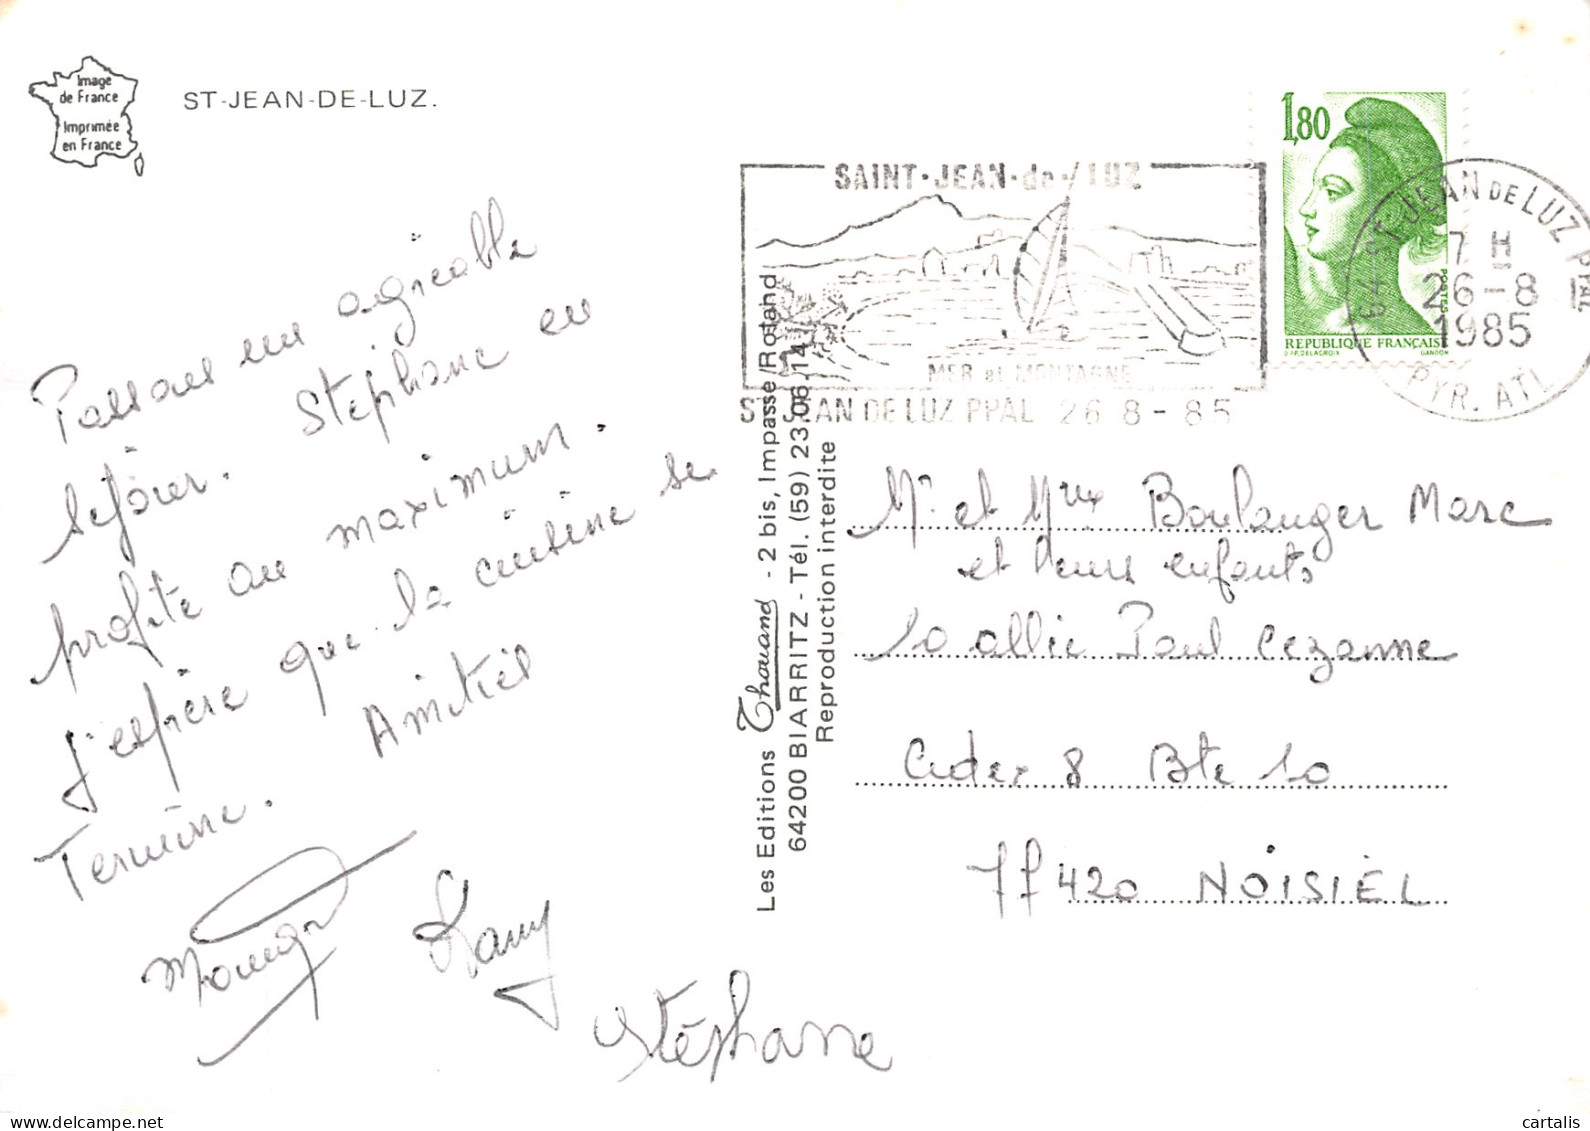 Image
de France
Imprimée
en France
ST-JEAN-DE-LUZ.
Passons un agréable
séjour. Stéphane en
profite au maximum.
J'espère que la cuisine se
Termine. Amitiés
Stéphane
SAINT-JEAN-de-LUZ
MER et MONTAGNE
ST JEAN DE LUZ PPAL 26 8-85
1,80
POSTES
REPUBLIQUE FRANÇAISE
D'AP. DELACROIX GANDON
64 ST JEAN DE LUZ PPAL
7 H
26-8
1985
PYR. ATL
Les Editions Thouand - 2 bis, Impasse Rolland
64200 BIARRITZ - Tél. (59) 23.06.14
Reproduction interdite
Mr et Mme Boulanger Marc
et leurs enfants
10 allée Paul Cezanne
Cidex 8 Bte 10
77420 NOISIEL